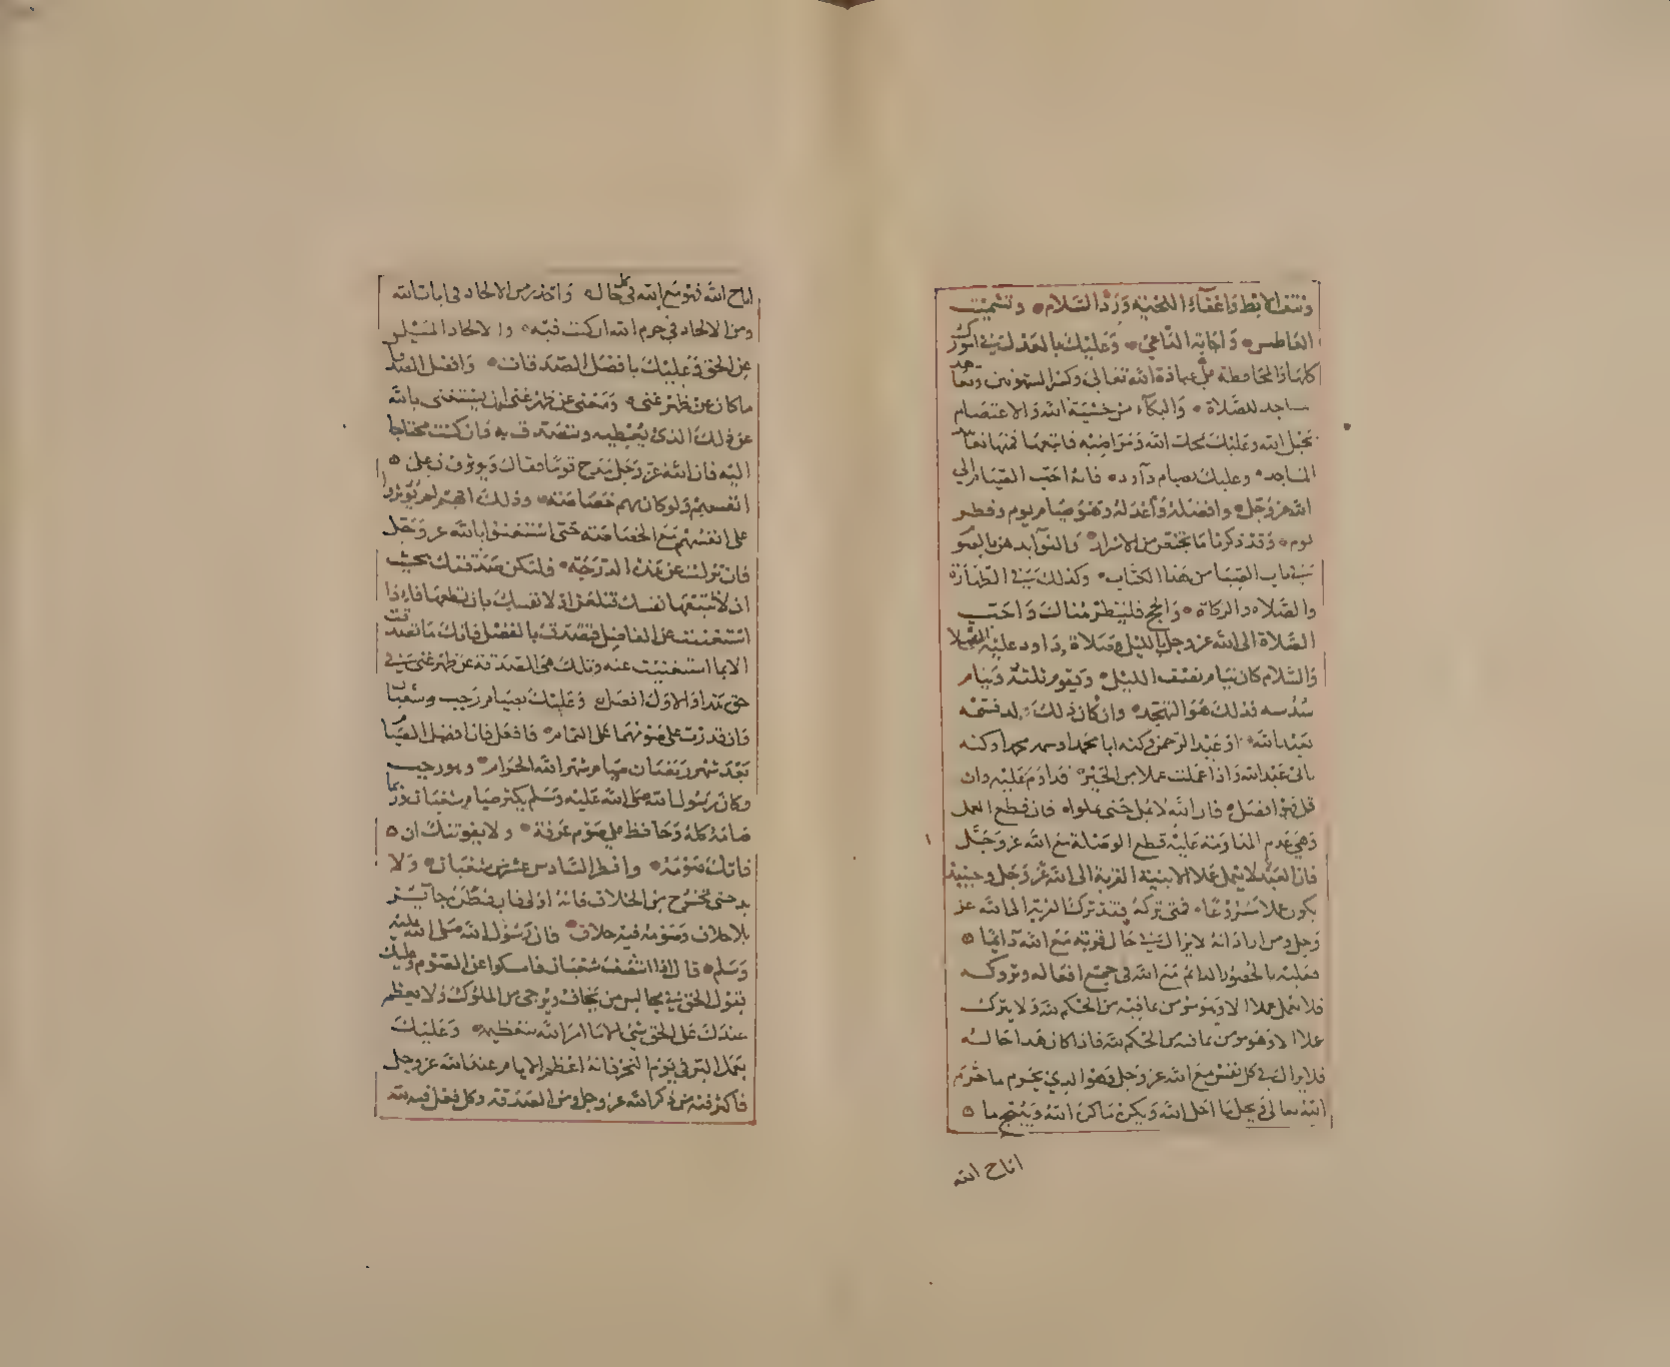 ونتف الابط واعفاء اللحية ورد السلام وتشميت
العاطس واجابة الداعي وعليك بالعدل في امورك
كلها والمحافظة على عبادة الله تعالى وكسر الشهوتين وتعاهد
المساجد للصلاة والبكاء من خشية الله والاعتصام
بحبل الله وعليك بمحاب الله ومراضيه فاتبعها فمنها تعاهد
المساجد وعليك بصيام داود فانه احب الصيام الى
الله عز وجل وافضله واعدله وهو صيام يوم وفطر
يوم وقد ذكرنا ما يختص من الاسرار والفوائد هذا بالصوم
في باب الصيام من هذا الكتاب وكذلك في الطهارة
والصلاة والزكاة والحج فلينظر هناك واحب
الصلاة الى الله عز وجل بالليل صلاة داود عليه الصلاة
والسلام كان ينام نصف الليل ويقوم ثلثه وينام
سدسه فذلك هو التهجد وان كان ذلك ولد فسمه
بعبد الله او عبد الرحمن وكنه ابا محمد او سمه محمدا وكنه
بابي عبد الله واذا عملت عملا من الخير فداوم عليه وان
قل فهو افضل فان الله لا يمل حتى تملوا فان قطع العمل
وهي عدم المداومة عليه قطع الوصلة مع الله عز وجل
فان العبد لا يعمل عملا الا بنية القربة الى الله عز وجل وحينئذ
يكون عملا مشروعا فمتى تركه فقد ترك القربة الى الله عز
وجل ومن اراد انه لا يزال في حال قربة مع الله دائما
فعليه بالحضور الدائم مع الله في جميع افعاله وتروكه
فلا يعمل عملا الا وهو مؤمن بما فيه من الحكم لله ولا يترك
عملا الا وهو مؤمن بما فيه من الحكم لله فاذا كان هذا حاله
فلا يزال في كل نفس مع الله عز وجل وهو الذي يحرم ما حرم
الله تعالى ويحل ما احل الله ويكره ما كره الله ويبيح ما
اباح الله
اباح الله فهو مع الله في كل حاله واحذر من الالحاد في ايات الله
ومن الالحاد في حرم الله ان كنت فيه والالحاد الميل
عن الحق وعليك بافضل الصدقات وافضل الصدقة
ما كان عن ظهر غنى ومعنى عن ظهر غنى ان يستغني بالله
عن ذلك الذي يعطيه ويتصدق به وان كنت محتاجا
اليه فان الله عز وجل مدح قوما فقال ويؤثرون على
انفسهم ولو كان بهم خصاصة وذلك انهم لم يؤثروا
على انفسهم مع الخصاصة حتى استغنوا بالله عز وجل
فان نزلت عن هذه الدرجة فلتكن صدقتك بحيث
ان لا تتبعها نفسك فتلحق اولا نفسك بان تطعمها فاذا
استغنيت عن الفاضل فتصدقت بالفضل فانك ما تصدقت
الا بما استغنيت عنه وتلك هي الصدقة عن ظهر غنى في
حق هذا والاول افضل وعليك بصيام رجب وشعبان
وان قدرت على صومهما على التمام فافعل فان افضل الصيام
بعد شهر رمضان صيام شهر الله الحرام وهو رجب
وكان رسول الله صلى الله عليه وسلم يكثر صيام شعبان وربما
صامه كله وحافظ على صوم عرفة ولا يفوتنك ان
فاتك صومه وافطر السادس عشر من شعبان ولا
بد حتى تخرج من الخلاف فانه اولى فان فطره جائز
بلا خلاف وصومه فيه خلاف فان رسول الله صلى الله عليه
وسلم قال اذا انتصف شعبان فامسكوا عن الصوم وعليك
بقول الحق في مجالس من يخاف ويرجى من الملوك ولا يعظم
عندك على الحق شيء الا ما امر الله بتعظيمه وعليك
بعمل البر في يوم النحر فانه اعظم الايام عند الله عز وجل
فاكثر فيه من ذكر الله عز وجل ومن الصدقة وكل فعل فيه لله